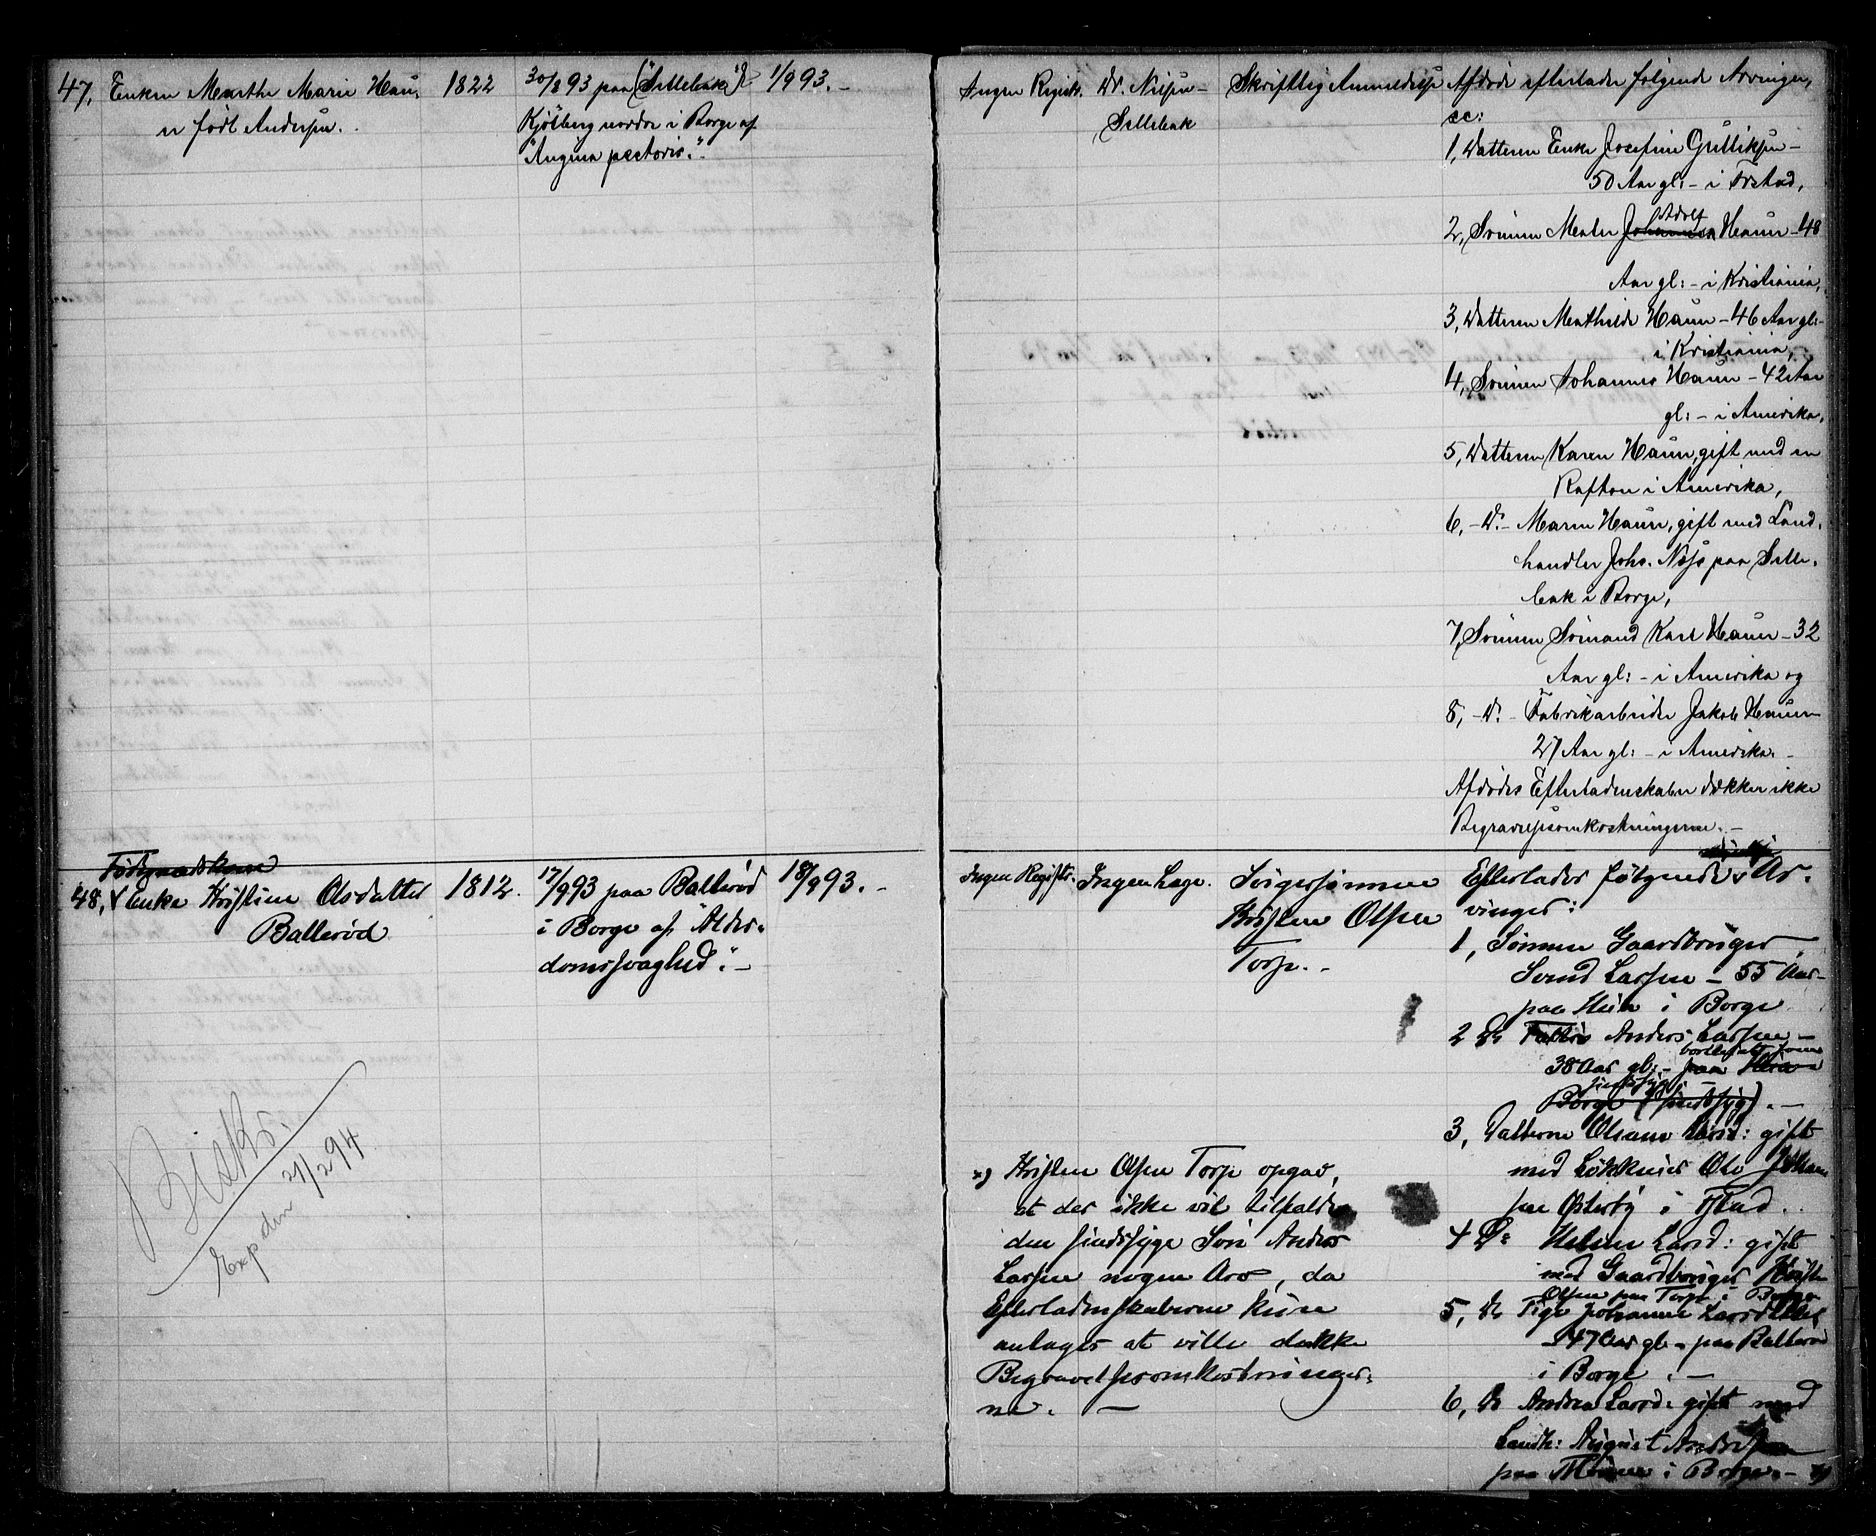 47, Enken Marthe Marie Hau-
en född Andersen.
1822
30/8 93 paa (Sellebak)
Kjölberg nordre i Borge af
"Angina pectoris."
1/9 93.-
Ingen Regist.
Dr. Nilsen -
Sellebak
Skriftlig Anmeldelse
Afdøde efterlader følgende Arvinger,
sc:
1, Datteren Enke Josefine Gulliksen -
50 Aar gl: - i Fr.stad,
2, Sönnen Maler Johannes Adolf Hauer - 48
Aar gl: - i Kristiania,
3, Datteren Mathilde Hauer - 46 Aar gl: -
i Kristiania,
4, Sönnen Johannes Hauer - 42 Aar
gl: - i Amerika,
5, Datteren Karen Hauer, gift med en
Rafton i Amerika,
6, - Do - Maren Hauer, gift med Land-
handler Johs. Næss paa Selle-
bak i Borge,
7, Sönnen Sömand Karl Hauer - 32
Aar gl: - i Amerika og
8, - Do - Fabrikarbeider Jakob Hauer
27 Aar gl: - i Amerika. -
Afdödes Efterladenskaber dækker ikke
Begravelsesomkostningerne. -
Födemadskone
48, Enke Kristine Olsdatter
Balleröd
1812.
17/9 93 paa Balleröd
i Borge af "Alder-
domssvaghed". -
18/9 93. -
Ingen Registr.
Ingen Læge.
Svigersönnen
Kristen Olsen
Torp. -
Efterlader fölgende Ar-
vinger:
1, Sönnen Gaardbruger
Svend Larsen - 55 Aar -
paa Huth i Borge
2 Do Anders Larsen -
38 Aar gl. - bortsat som
paa
sindssyg
Borge (sindssyg). -
3, Datteren Olsine Larsd: gift
med Ole Johan-
sen Østerby i Fstad.
4 Do Helene Larsd: gift
med Gaardbruger Kristen
Olsen paa Torp i Borge
5, Do Pige Johanne Larsdatter
- 47 Aar gl. - paa Balleröd
i Borge. -
6, Do Andrea Larsd: gift med
Landh: August Andersen
paa Moum i Borge. - x)
x) Kristen Olsen Torp opgav,
at der ikke vil tilfalde
den sindssyge Sön Anders
Larsen nogen Arv, da
Efterladenskaberne kun
antages at ville dække
Begravelsesomkostninger-
ne. -
Beskr.
Exp den 21/2 94.